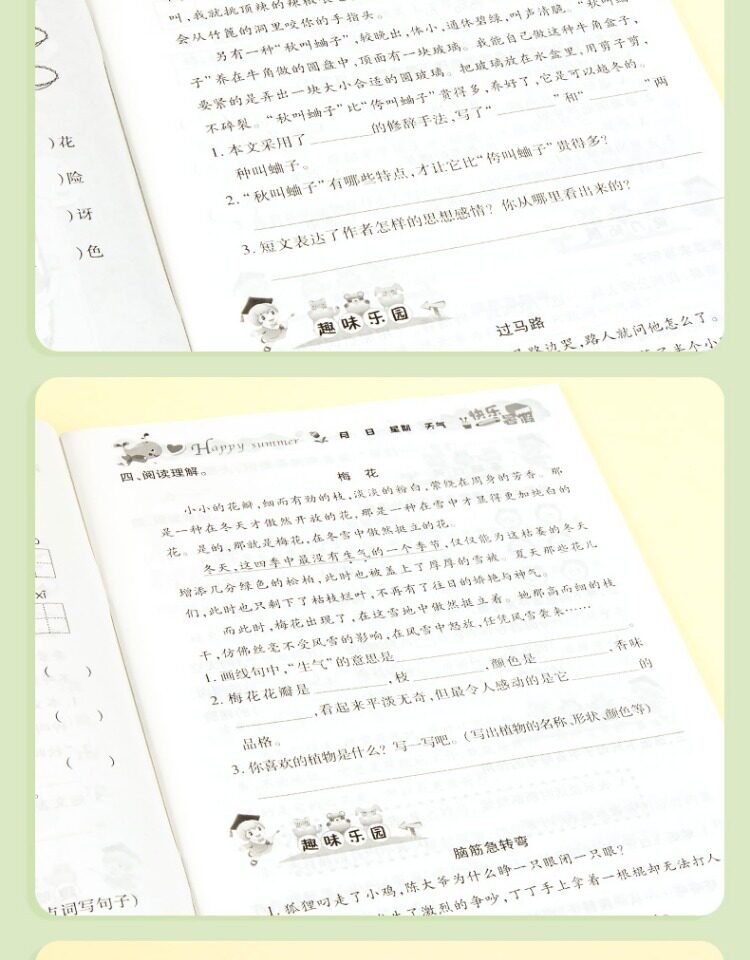 叫,我就挑顶辣的辣椒
会从竹篦的洞里咬你的手指头。
另有一种“秋叫蛐子”,较晚出,体小,通体碧绿,叫声清脆。“秋叫蛐
子”养在牛角做的圆盘中,顶面有一块玻璃。我能自己做这种牛角盒子,
要紧的是弄出一块大小合适的圆玻璃。把玻璃放在水盒里,用剪子剪,
不碎裂。“秋叫蛐子”比“侉叫蛐子”贵得多,养好了,它是可以越冬的。
1. 本文采用了 的修辞手法,写了“ ”和“ ”两
种叫蛐子。
2. “秋叫蛐子”有哪些特点,才让它比“侉叫蛐子”贵得多?
3. 短文表达了作者怎样的思想感情?你从哪里看出来的?
)花
)险
)讶
)色
趣味乐园
过马路
路边哭,路人就问他怎么了。
Happy summer 月 日 星期 天气 快乐暑假
四、阅读理解。
梅 花
小小的花瓣,细而有劲的枝,淡淡的粉白,萦绕在周身的芳香。那
是一种在冬天才傲然开放的花,那是一种在雪中才显得更加纯白的
花。是的,那就是梅花,在冬雪中傲然挺立的花。
冬天,这四季中最没有生气的一个季节,仅仅能为这枯萎的冬天
增添几分绿色的松柏,此时也被盖上了厚厚的雪被。夏天那些花儿
们,此时也只剩下了枯枝烂叶,不再有了往日的娇艳与神气。
而此时,梅花出现了,在这雪地中傲然挺立着。她那高而细的枝
干,仿佛丝毫不受风雪的影响,在风雪中怒放,任凭风雪袭来……
1. 画线句中,“生气”的意思是 。
2. 梅花花瓣是 ,枝 ,颜色是 ,香味
,看起来平淡无奇,但最令人感动的是它 的
品格。
3. 你喜欢的植物是什么?写一写吧。(写出植物的名称、形状、颜色等)
xī
( )
( )
( )
点词写句子)
趣味乐园
脑筋急转弯
1. 狐狸叼走了小鸡,陈大爷为什么睁一只眼闭一只眼?
了激烈的争吵,丁丁手上拿着一根棍却无法打人